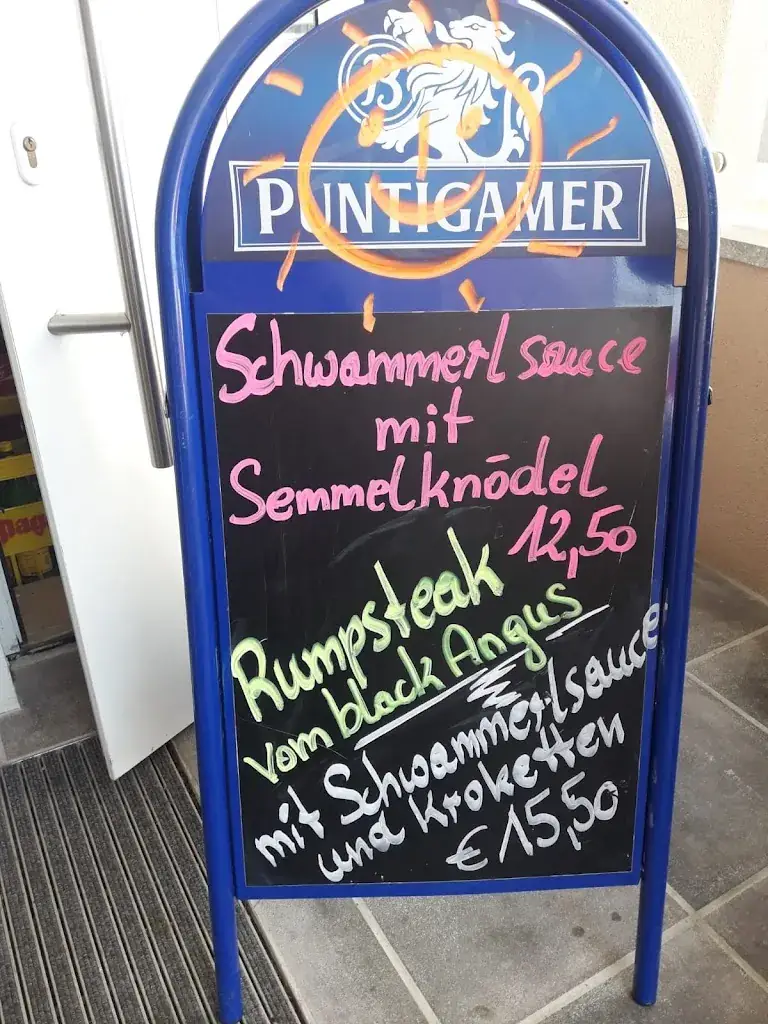 PUNTIGAMER
Schwammerlsauce
mit
Semmelknödel
12,50
Rumpsteak
vom black Angus
mit Schwammerlsauce
und Kroketten
€ 15,50